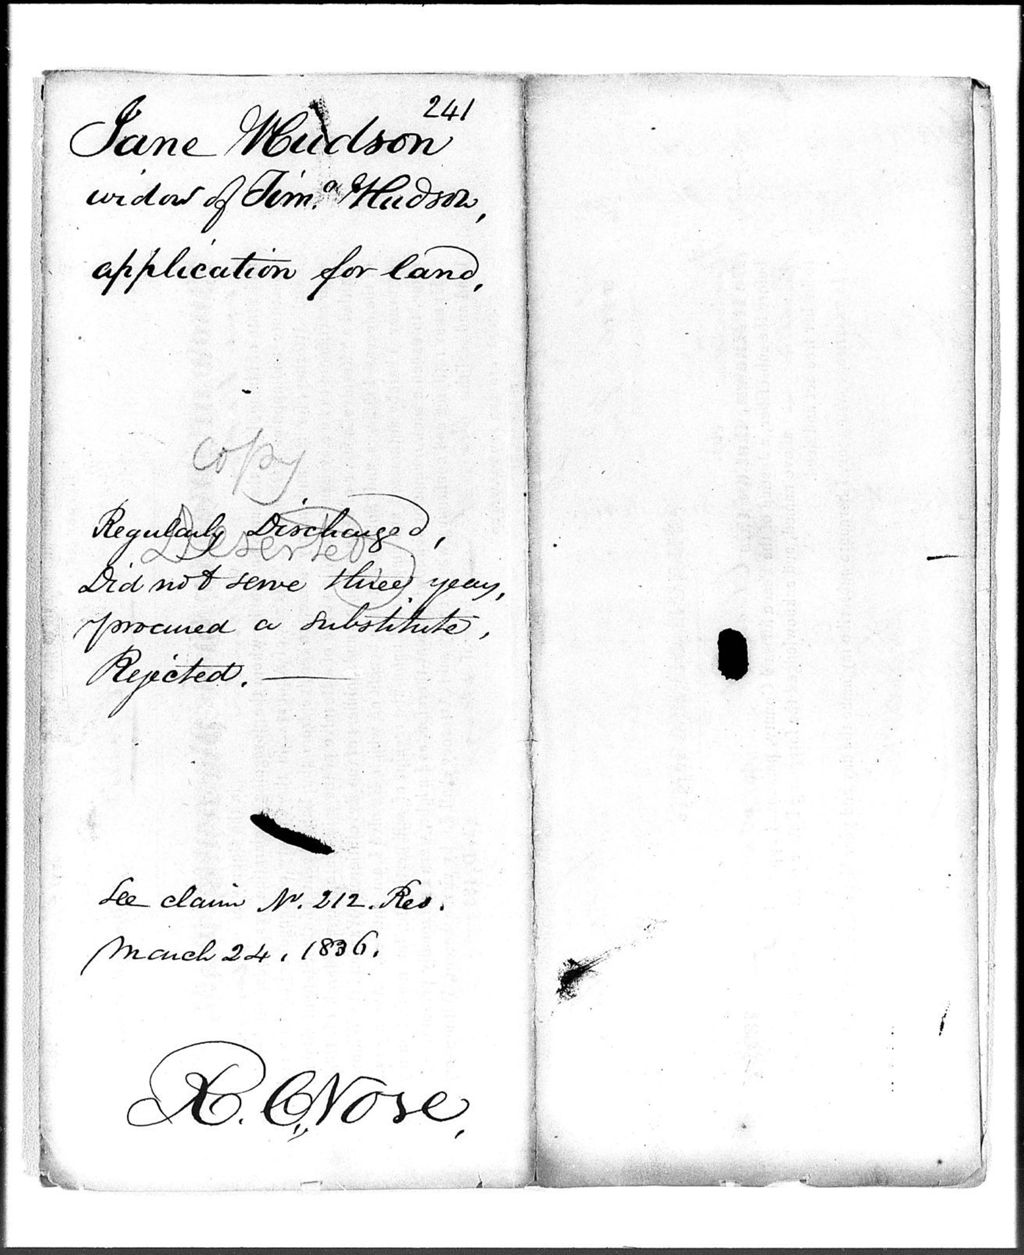 241
Jane Hudson
widow of Tim.o Hudson,
application for land,
copy
Deserted
Regularly Discharged,
Did not serve three years,
procured a substitute,
Rejected.
See claim No. 212. Res.
March 24. 1836.
R. C. Nose,